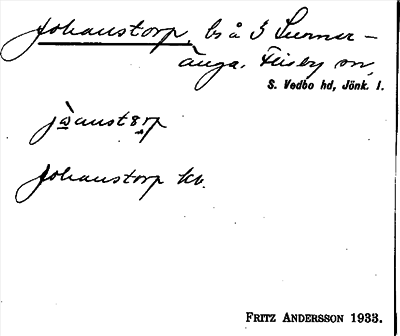 Johanstorp, ls å 3 Sunner-
änga, Flisby sn,
S. Vedbo hd, Jönk. l.
jo̲anstorp
Johanstorp kv.
FRITZ ANDERSSON 1933.